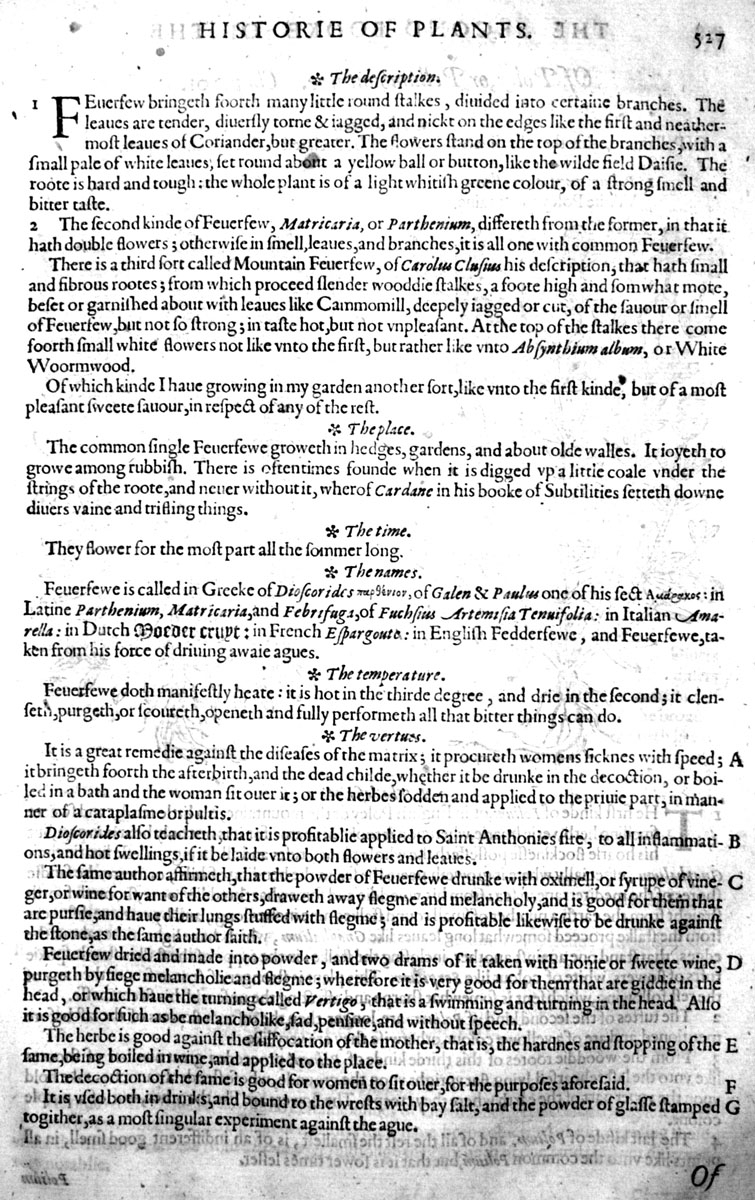 HISTORIE OF PLANTS. 527
❊ The deſcription.
1 FEuerfew bringeth foorth many little round ſtalkes, diuided into certaine branches. The
leaues are tender, diuerſly torne & iagged, and nickt on the edges like the firſt and neather-
moſt leaues of Coriander, but greater. The flowers ſtand on the top of the branches, with a
ſmall pale of white leaues, ſet round about a yellow ball or button, like the wilde field Daiſie. The
roote is hard and tough: the whole plant is of a light whitiſh greene colour, of a ſtrong ſmell and
bitter taſte.
2 The ſecond kinde of Feuerfew, Matricaria, or Parthenium, differeth from the former, in that it
hath double flowers; otherwiſe in ſmell, leaues, and branches, it is all one with common Feuerfew.
There is a third ſort called Mountain Feuerfew, of Carolus Cluſius his deſcription, that hath ſmall
and fibrous rootes; from which proceed ſlender wooddie ſtalkes, a foote high and ſomwhat more,
beſet or garniſhed about with leaues like Cammomill, deepely iagged or cut, of the ſauour or ſmell
of Feuerfew, but not ſo ſtrong; in taſte hot, but not vnpleaſant. At the top of the ſtalkes there come
foorth ſmall white flowers not like vnto the firſt, but rather like vnto Abſynthium album, or White
Woormwood.
Of which kinde I haue growing in my garden another ſort, like vnto the firſt kinde, but of a moſt
pleaſant ſweete ſauour, in reſpect of any of the reſt.
❊ The place.
The common ſingle Feuerfewe groweth in hedges, gardens, and about olde walles. It ioyeth to
growe among rubbiſh. There is oftentimes founde when it is digged vp a little coale vnder the
ſtrings of the roote, and neuer without it, wherof Cardane in his booke of Subtilities ſetteth downe
diuers vaine and trifling things.
❊ The time.
They flower for the moſt part all the ſommer long.
❊ The names.
Feuerfewe is called in Greeke of Dioſcorides παρθένιον, of Galen & Paulus one of his ſect Ἀμάρακος: in
Latine Parthenium, Matricaria, and Febrifuga, of Fuchſius Artemiſia Tenuifolia: in Italian Ama-
rella: in Dutch Moeder cruyt: in French Eſpargoute: in Engliſh Fedderfewe, and Feuerfewe, ta-
ken from his force of driuing awaie agues.
❊ The temperature.
Feuerfewe doth manifeſtly heate: it is hot in the thirde degree, and drie in the ſecond; it clen-
ſeth, purgeth, or ſcoureth, openeth and fully performeth all that bitter things can do.
❊ The vertues.
It is a great remedie againſt the diſeaſes of the matrix; it procureth womens ſicknes with ſpeed; A
it bringeth foorth the afterbirth, and the dead childe, whether it be drunke in the decoction, or boi-
led in a bath and the woman ſit ouer it; or the herbes ſodden and applied to the priuie part, in man-
ner of a cataplaſme or pultis.
Dioſcorides alſo teacheth, that it is profitablie applied to Saint Anthonies fire, to all inflammati- B
ons, and hot ſwellings, if it be laide vnto both flowers and leaues.
The ſame author affirmeth, that the powder of Feuerfew drunke with oximell, or ſyrupe of vine- C
ger, or wine for want of the others, draweth away flegme and melancholy, and is good for them that
are purſie, and haue their lungs ſtuffed with flegme; and is profitable likewiſe to be drunke againſt
the ſtone, as the ſame author ſaith.
Feuerfew dried and made into powder, and two drams of it taken with honie or ſweete wine, D
purgeth by ſiege melancholie and flegme; wherefore it is very good for them that are giddie in the
head, or which haue the turning called Vertigo, that is a ſwimming and turning in the head. Alſo
it is good for ſuch as be melancholike, ſad, penſiue, and without ſpeech.
The herbe is good againſt the ſuffocation of the mother, that is, the hardnes and ſtopping of the E
ſame, being boiled in wine, and applied to the place.
The decoction of the ſame is good for women to ſit ouer, for the purpoſes aforeſaid. F
It is vſed both in drinks, and bound to the wreſts with bay ſalt, and the powder of glaſſe ſtamped G
togither, as a moſt ſingular experiment againſt the ague.
Of